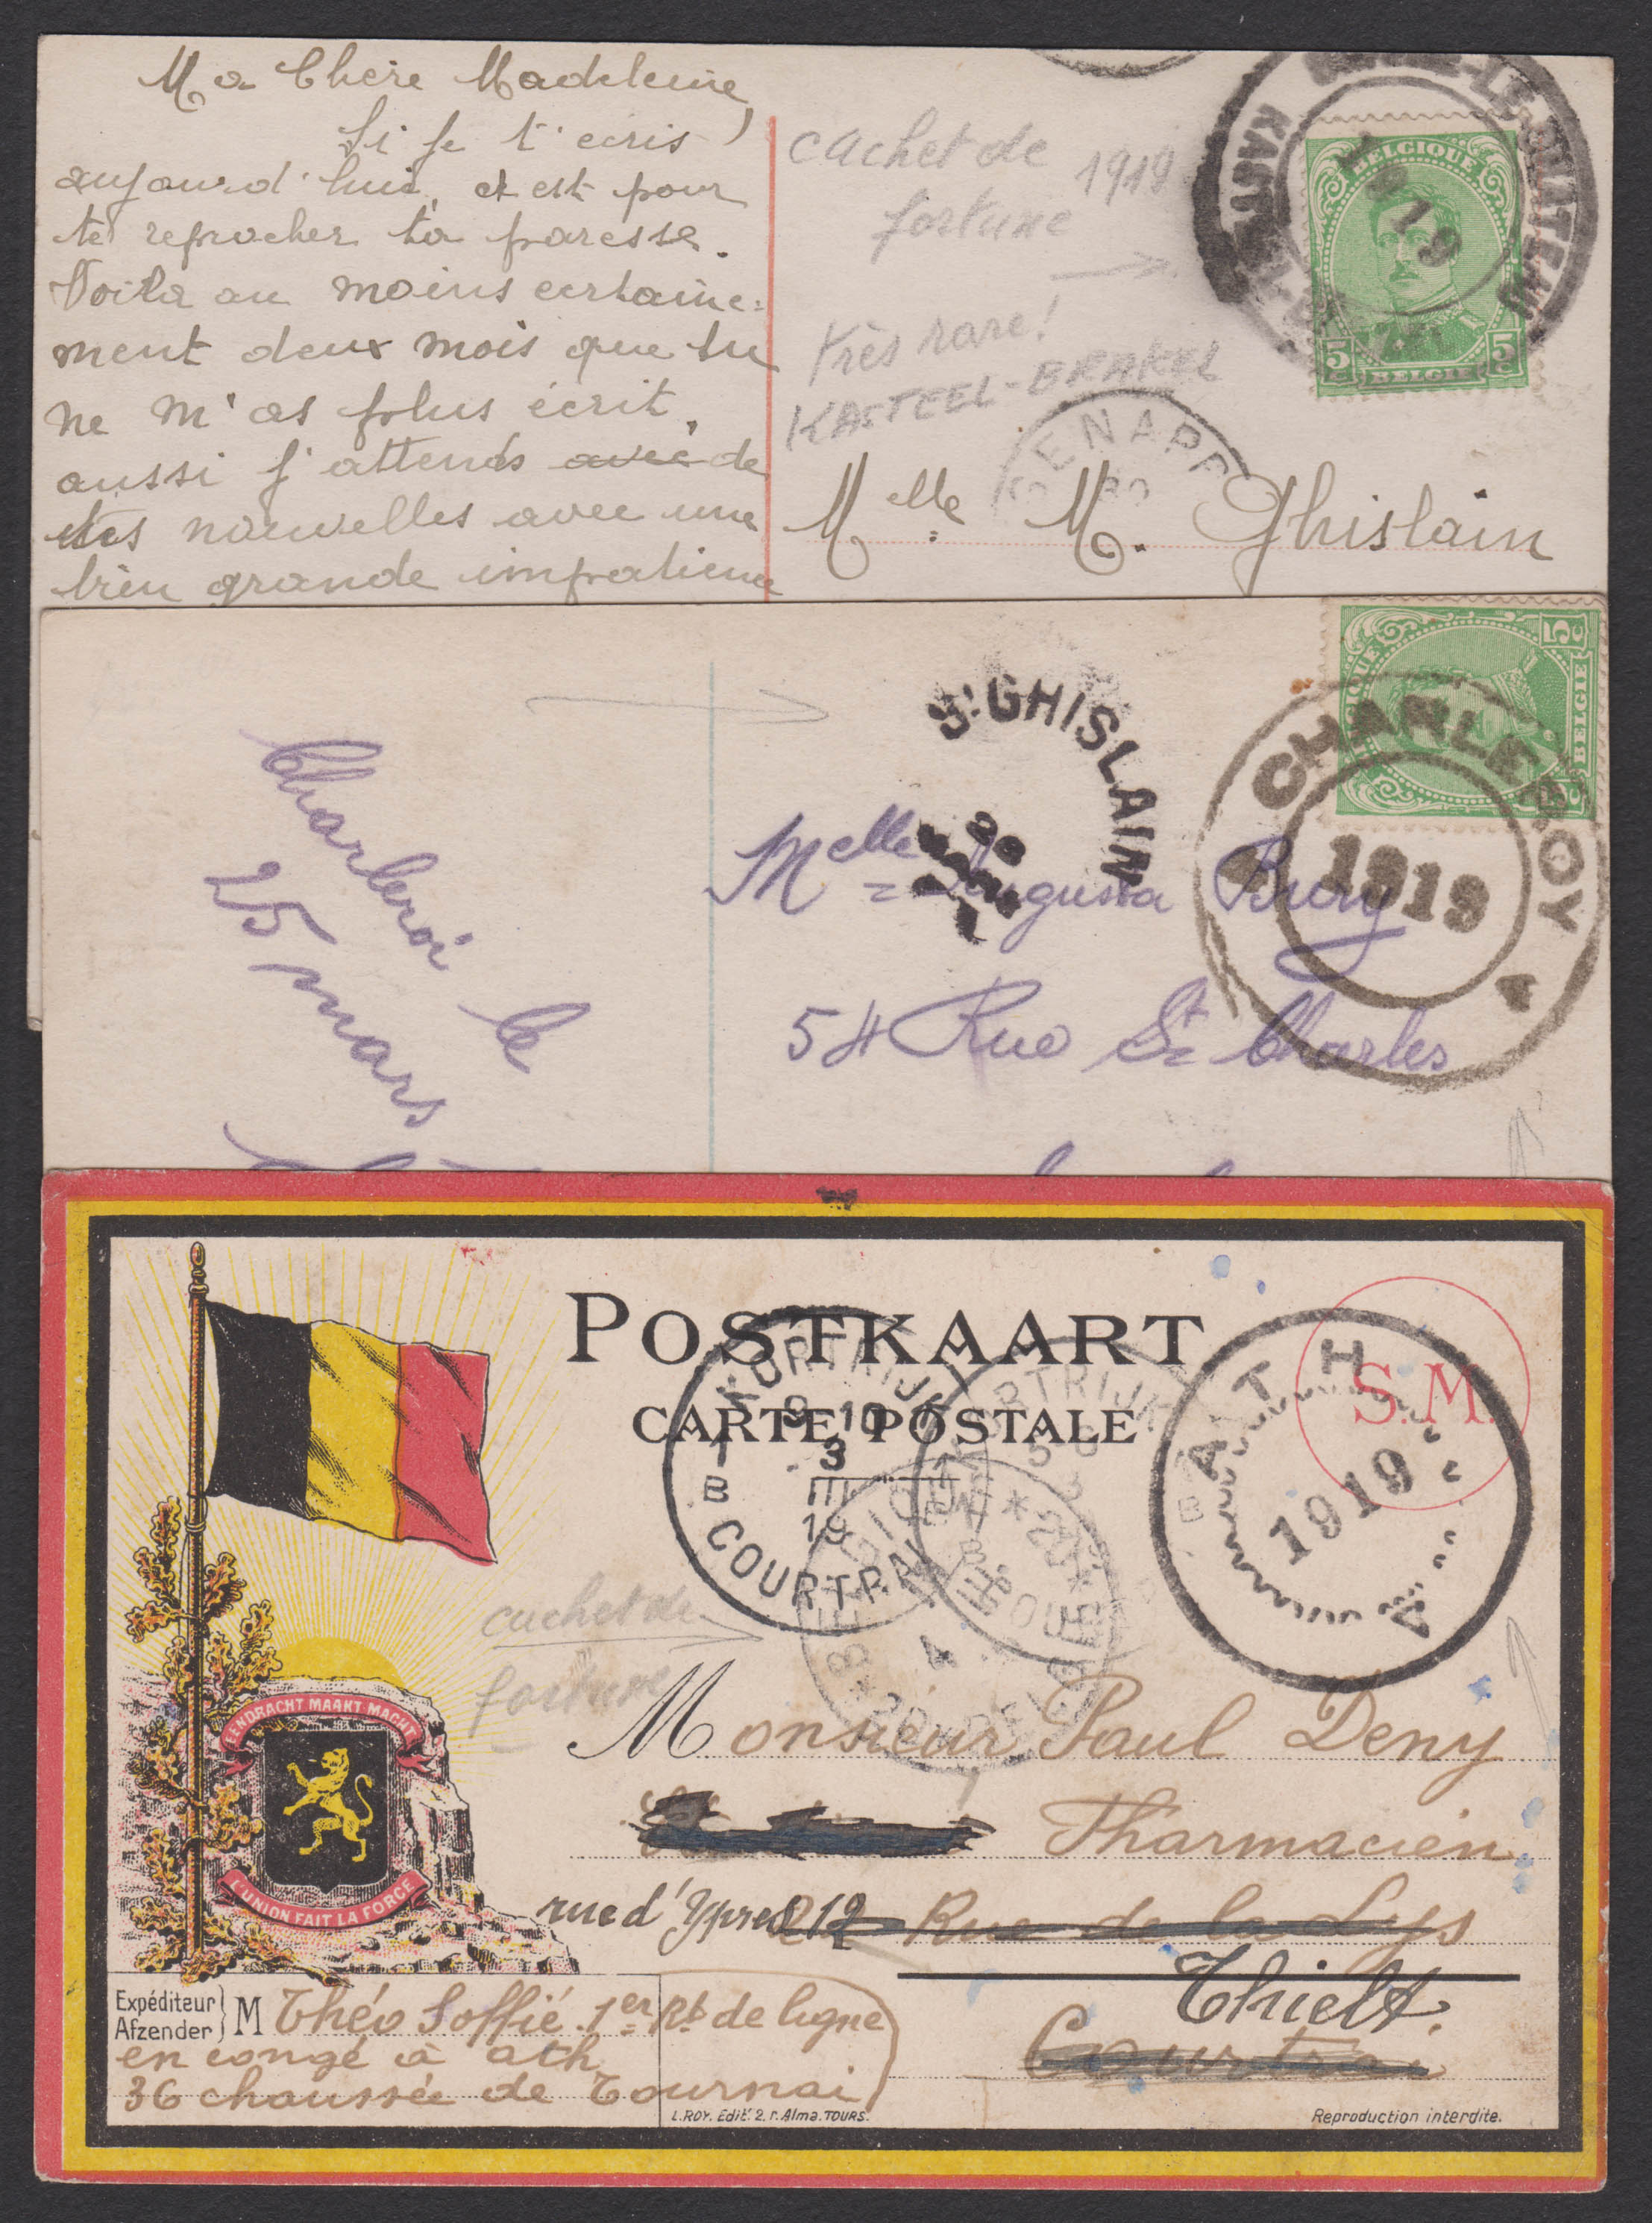 Ma Chère Madeleine,
Si je t'écris
aujourd'hui, c'est pour
te reprocher ta paresse.
Voilà au moins certaine-
ment deux mois que tu
ne m'as plus écrit,
aussi j'attends avec de
tes nouvelles avec une
bien grande impatience
cachet de 1919
fortune
très rare!
KASTEEL-BRAKEL
BELGIQUE
5 5
BELGIE
1919
GENAPPE
Melle M. Ghislain
Charleroi le
25 mars
ST GHISLAIN
BELGIE
5c
CHARLEROY
1919
4
Melle Augusta Bury
54 Rue St Charles
POSTKAART
CARTE POSTALE
S.M.
KORTRIJK
1 9-10 1
3
B III B
19
COURTRAI
KORTRIJK
BELGIQUE
4
ATH
1919
A
EENDRACHT MAAKT MACHT
L'UNION FAIT LA FORCE
cachet de
fortune
Monsieur Paul Deny
Pharmacien
rue d'Ypres 12 Rue de la Lys
Thielt.
Courtrai
Expéditeur
Afzender } M Théo Soffié 1er Rt de ligne
en congé à ath
36 chaussée de Tournai
L. ROY. Edit. 2. r. Alma. TOURS.
Reproduction interdite.